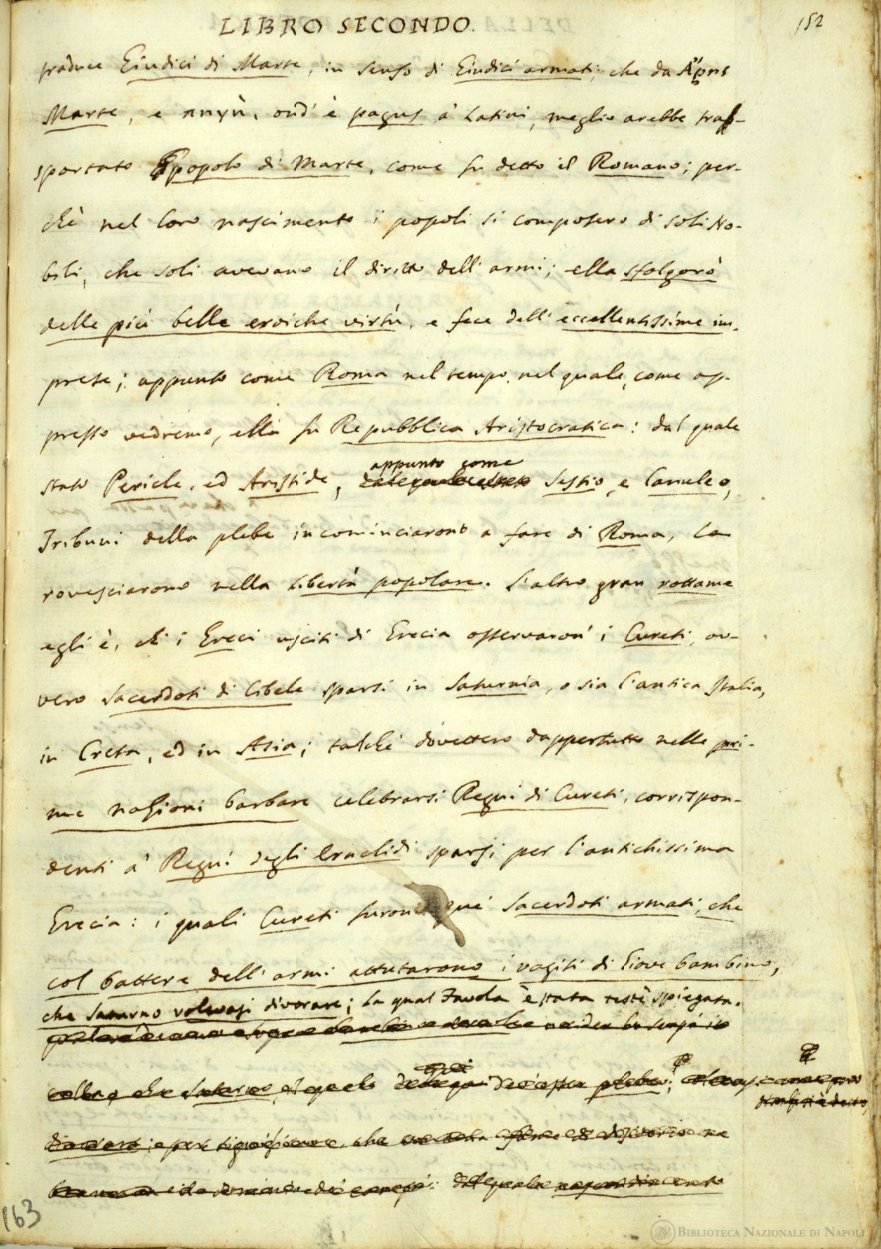 LIBRO SECONDO.
152
traduce Giudici di Marte, in senso di Giudici armati; che da Ἄρης
Marte, e πηγὴ, ond' è pagus a' Latini, meglio arebbe tras-
sportato popolo di Marte, come fu detto il Romano; per-
chè nel loro nascimento i popoli si composero di soli No-
bili, che soli avevano il diritto dell' armi; ella sfolgorò
delle più belle eroiche virtù, e fece dell' eccellentissime im-
prese; appunto come Roma nel tempo, nel quale, come ap-
presso vedremo, ella fu Repubblica Aristocratica: dal quale
stato Pericle, ed Aristide, appunto come Sestio, e Canuleo,
Tribuni della plebe incominciarono a fare di Roma, la
rovesciarono nella libertà popolare. L'altro gran rottame
egli è, ch' i Greci usciti di Grecia osservaron' i Cureti, ov-
vero Sacerdoti di Cibele sparsi in Saturnia, o sia l'antica Italia,
in Creta, ed in Asia; talchè dovettero dappertutto nelle pri-
me nazioni barbare celebrarsi Regni di Cureti, corrispon-
denti a' Regni degli Eraclidi sparsi per l'antichissima
Grecia: i quali Cureti furono que' Sacerdoti armati, che
col battere dell' armi attutarono i vagiti di Giove bambino,
che Saturno volevasi divorare; la qual Favola è stata testè spiegata.
che Saturno
plebe
163
BIBLIOTECA NAZIONALE DI NAPOLI